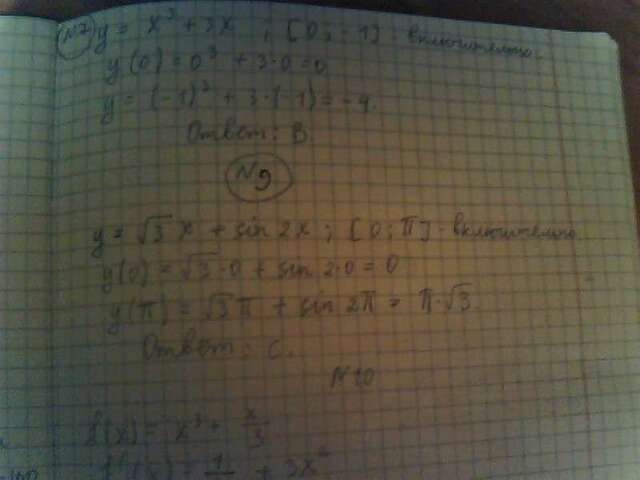 №7 y = x³ + 3x ; [0; -1] включительно.
y(0) = 0³ + 3·0 = 0
y = (-1)³ + 3·(-1) = -4.
Ответ: В.
№9
y = √3 x + sin 2x ; [0; π] - включительно.
y(0) = √3·0 + sin 2·0 = 0
y(π) = √3π + sin 2π = π·√3.
Ответ: С.
№10
f(x) = x³ + x/3
f'(x) = 1 + 3x²